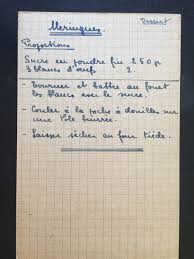 Dessert
Meringues
Proportions
Sucre en poudre fin 250 g.
3 blancs d'œufs 2.
- Tourner et battre au fouet
les blancs avec le sucre.
- Couler à la poche à douilles sur
une tôle beurrée.
- Laisser sécher au four tiède.